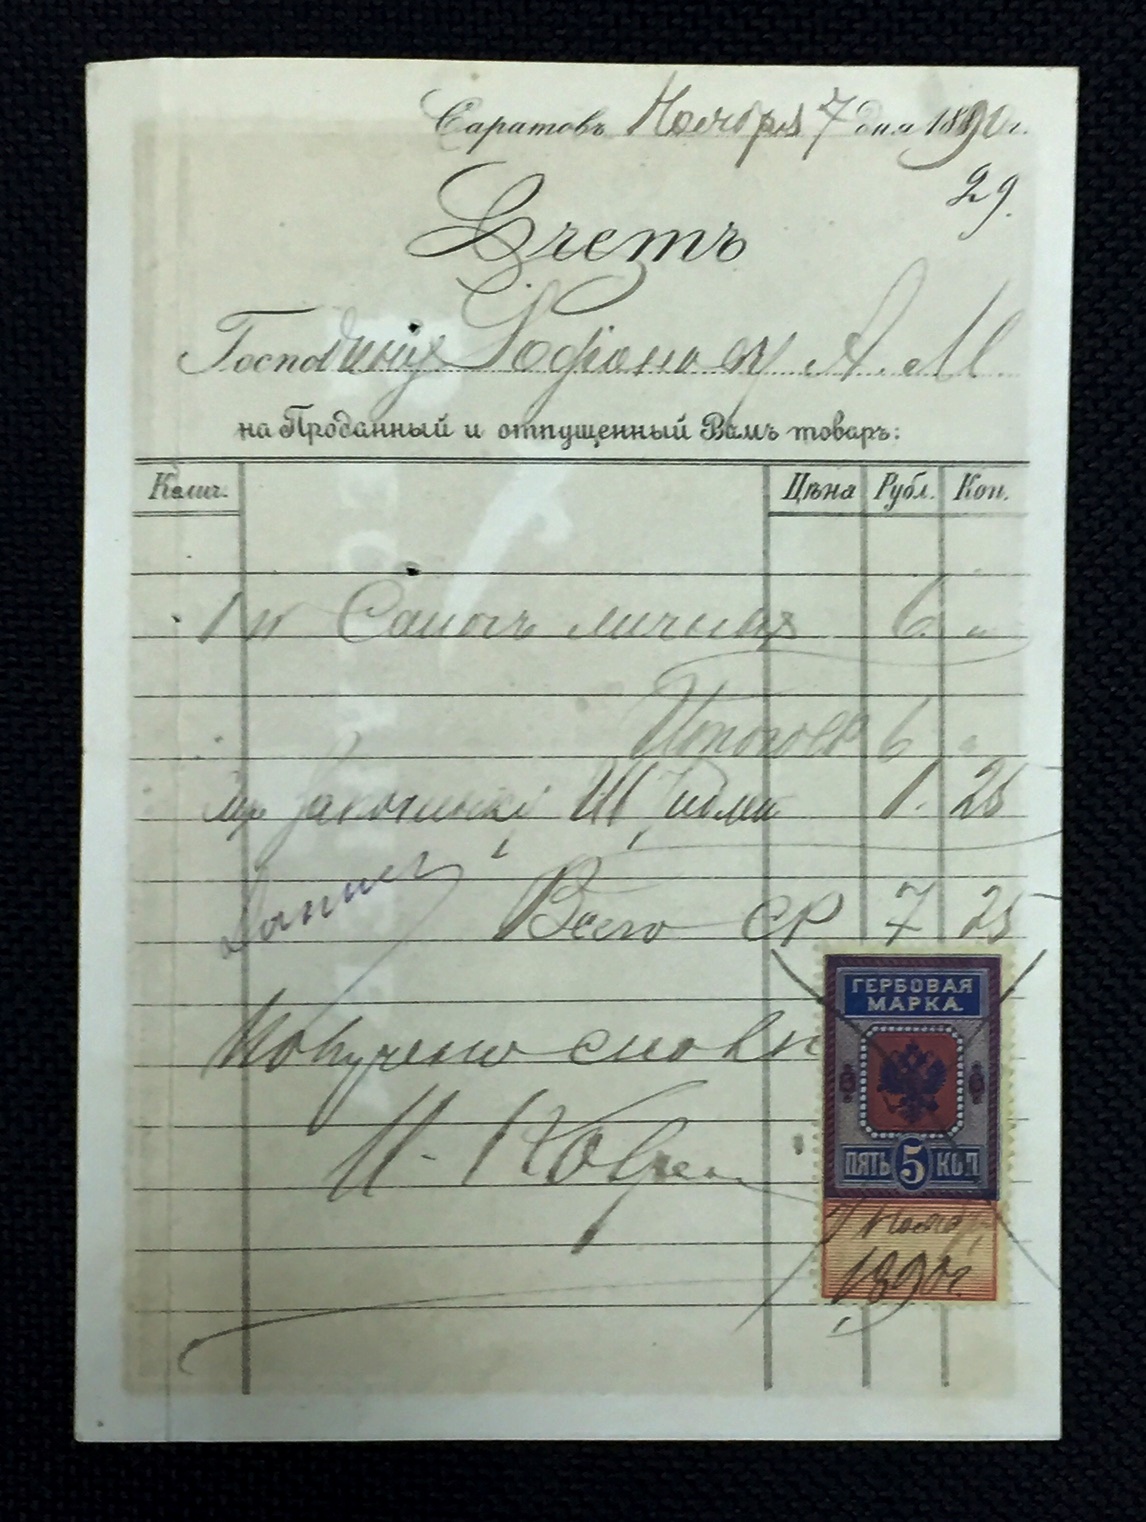 Саратовъ Ноября 7 дня 1890 г.
29.
Счетъ
Господину Софонову А. М
на Проданный и отпущенный Вамъ товаръ:
Колич. Цѣна Рубл. Коп.
1 п Сапогъ личныхъ 6. "
Итого СР 6 "
1. 25
Всего СР 7 25
Получено сполна
И.
ГЕРБОВАЯ
МАРКА.
ПЯТЬ 5 КОП
7 Ноябр.
1890 г.